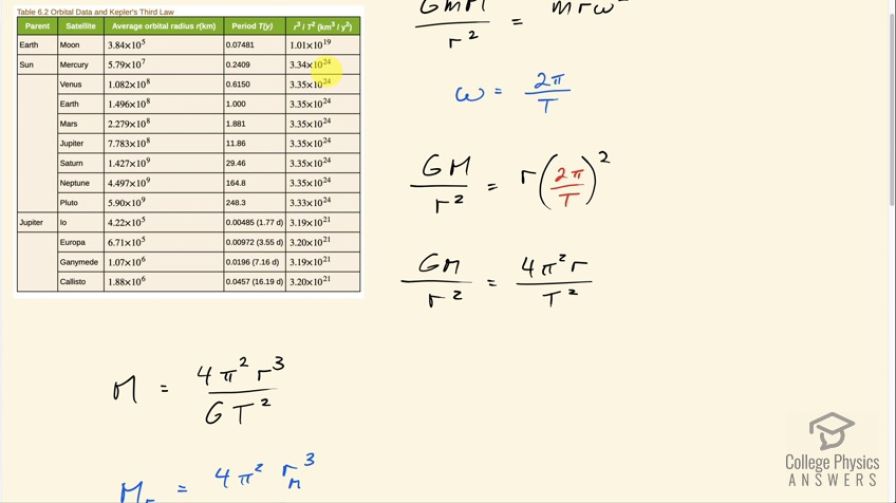 Table 6.2 Orbital Data and Kepler's Third Law
Parent Satellite Average orbital radius r(km) Period T(y) r³ / T² (km³ / y²)
Earth Moon 3.84×10⁵ 0.07481 1.01×10¹⁹
Sun Mercury 5.79×10⁷ 0.2409 3.34×10²⁴
Venus 1.082×10⁸ 0.6150 3.35×10²⁴
Earth 1.496×10⁸ 1.000 3.35×10²⁴
Mars 2.279×10⁸ 1.881 3.35×10²⁴
Jupiter 7.783×10⁸ 11.86 3.35×10²⁴
Saturn 1.427×10⁹ 29.46 3.35×10²⁴
Neptune 4.497×10⁹ 164.8 3.35×10²⁴
Pluto 5.90×10⁹ 248.3 3.33×10²⁴
Jupiter Io 4.22×10⁵ 0.00485 (1.77 d) 3.19×10²¹
Europa 6.71×10⁵ 0.00972 (3.55 d) 3.20×10²¹
Ganymede 1.07×10⁶ 0.0196 (7.16 d) 3.19×10²¹
Callisto 1.88×10⁶ 0.0457 (16.19 d) 3.20×10²¹
GmM / r² = mrω²
ω = 2π / T
GM / r² = r(2π / T)²
GM / r² = 4π²r / T²
M = 4π²r³ / GT²
= 4π² r_M³
College Physics
ANSWERS